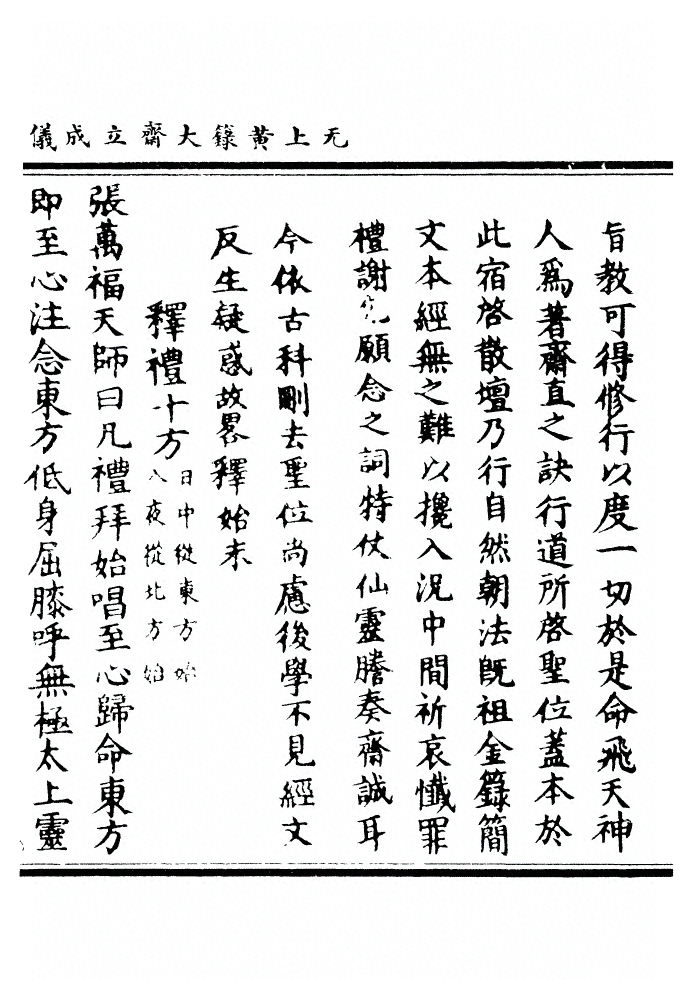 无上黃籙大齋立成儀
旨教可得修行以度一切於是命飛天神
人為著齋直之訣行道所啓聖位蓋本於
此宿啓散壇乃行自然朝法旣祖金籙簡
文本經無之難以攙入況中間祈哀懺罪
禮謝願念之詞特仗仙靈謄奏齋誠耳
今依古科刪去聖位尚慮後學不見經文
反生疑惑故畧釋始末
釋禮十方日中從東方始
入夜從北方始
張萬福天師曰凡禮拜始唱至心歸命東方
即至心注念東方低身屈膝呼無極太上靈